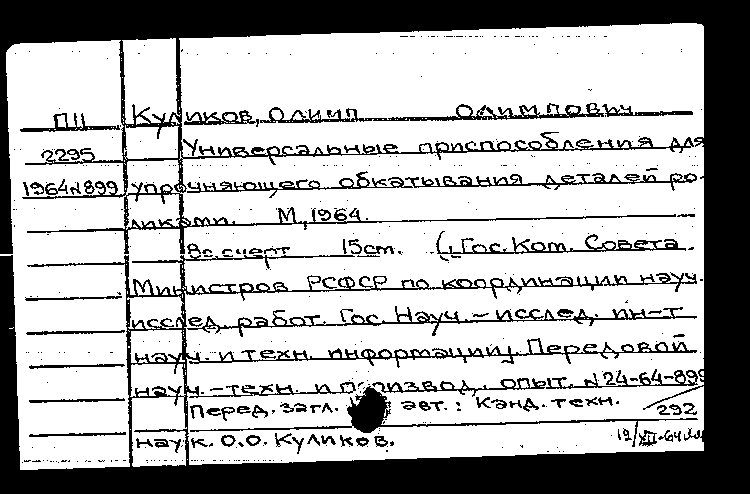 П11 Куликов, Олимп Олимпович
2295 Универсальные приспособления для
1964н899 упрочняющего обкатывания деталей ро-
ликами. М., 1964.
8с. с черт 15см. (Гос. Ком. Совета
Министров РСФСР по координации науч.
исслед. работ. Гос. Науч.-исслед. ин-т
науч. и техн. информации). Передовой
науч.-техн. и производ. опыт. №24-64-899
Перед. загл. авт.: Канд. техн. 292
наук. О.О. Куликов. 19/XII-64